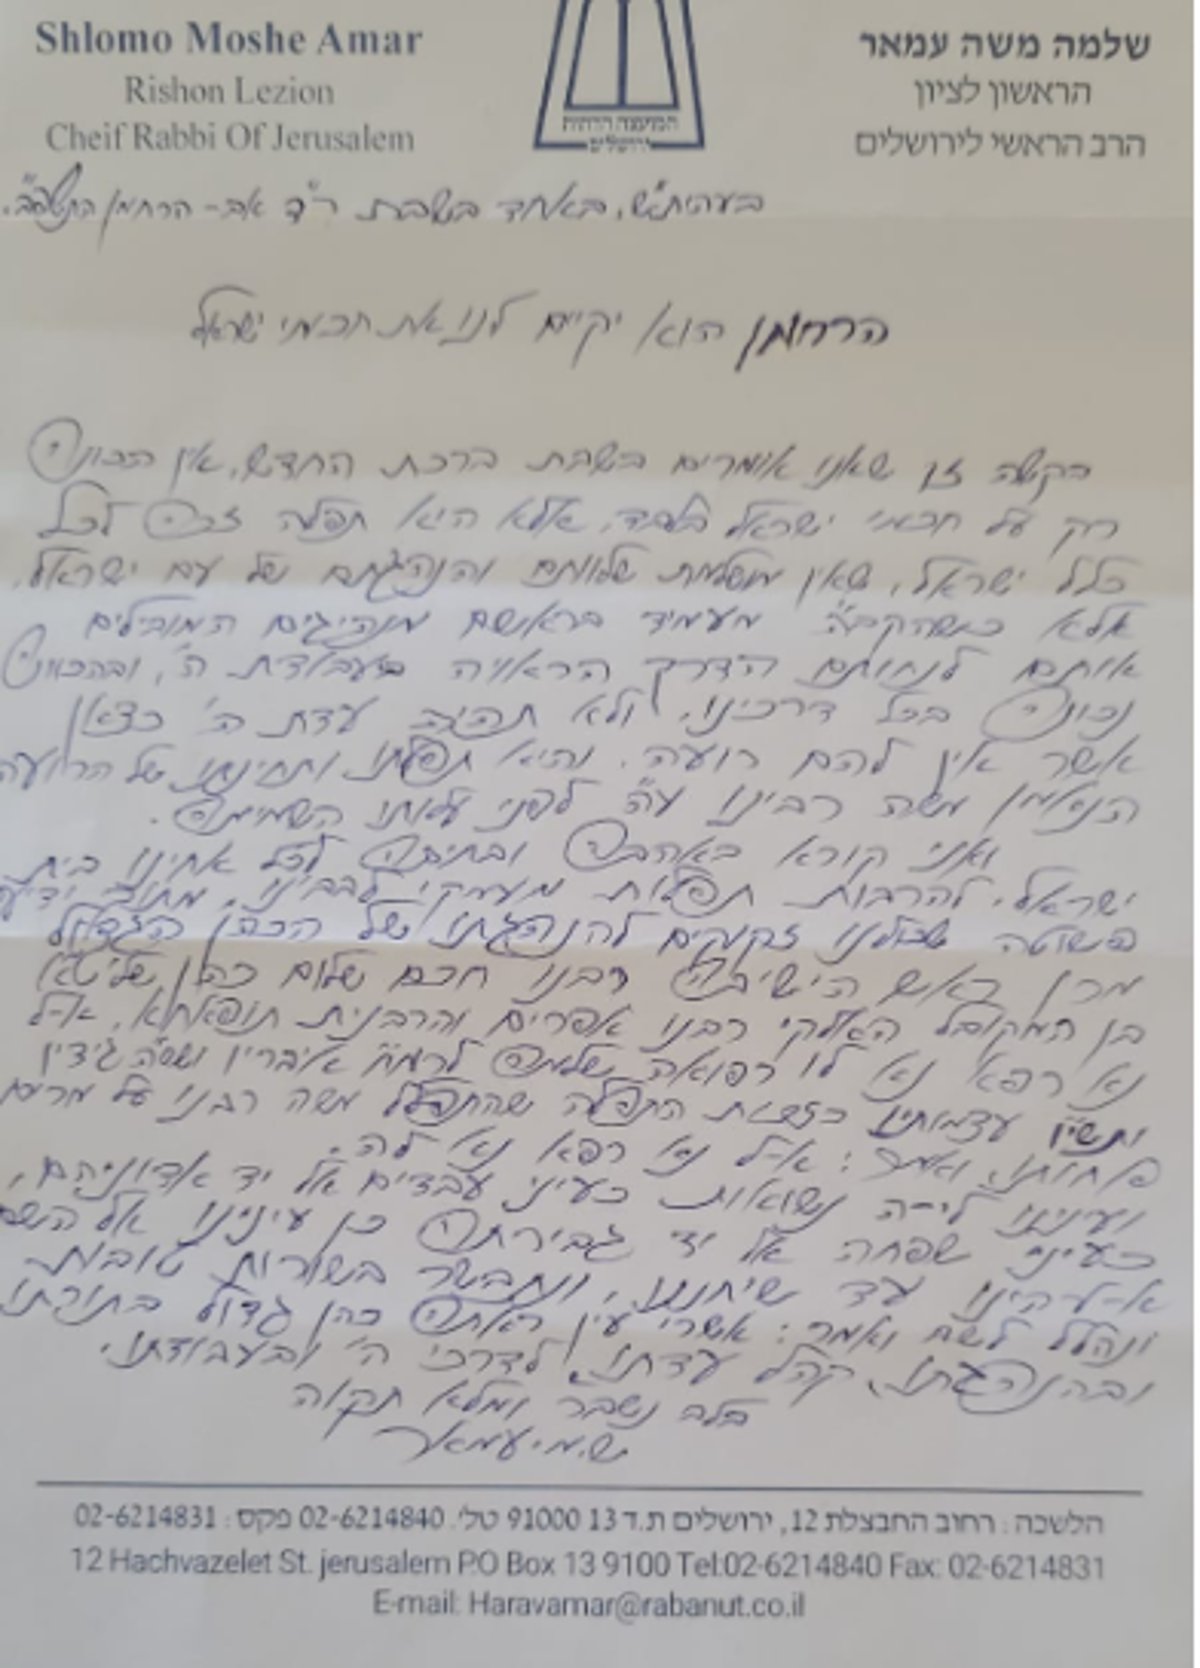 Shlomo Moshe Amar
Rishon Lezion
Cheif Rabbi Of Jerusalem
המועצה הדתית
ירושלים
שלמה משה עמאר
הראשון לציון
הרב הראשי לירושלים
בעהית"ש, באחד בשבת ר"ד אב - הרחמן
הרחמן הוא יקיים לנו את חכמי ישראל
בקשה זן שאנו אומרים בשבת ברכת החדש, אין הכונה
רק על חכמי ישראל בלבד, אלא היא תפלה זכה לכל
כלל ישראל, שאין מושלמת שלוותם והנהגתם של עם ישראל,
אלא כשהקב"ה מעמיד בראשם מנהיגים המובילים
אותם לנחותם הדרך הראויה בעבודת ה', ובהכוונה
נכונה בכל דרכינו, ולא תהיה עדת ה' כצאן
אשר אין להם רועה. והיא תפלתו ותחינתו של הרועה
הנאמן משה רבינו ע"ה לפני עלותו השמימה.
ואני קורא באהבה ובחיבה לכל אחינו בית
ישראל, להרבות תפלות מעמקי לבבינו, מתוך ידיעה
פשוטה שכולנו זקוקים להנהגתו של הכהן הגדול
מרן ראש הישיבה רבנו חכם שלום כהן שליט"א
בן המקובל האלקי רבנו אפרים והרבנית תופאחא, א-ל
נא רפא נא לו רפואה שלמה לרמ"ח איבריו ושס"ה גידיו
עצמותיו כזאת התפלה שהתפלל משה רבנו על מרים
אחותו, ואמר: א-ל נא רפא נא לה.
ועינינו לי-ה נשואות כעיני עבדים אל יד אדוניהם,
כעיני שפחה אל יד גבירתה כן עינינו אל השם
א-ל-הינו עד שיחננו, ונתבשר בשורות טובות
ונהלל לשם ואמר: אשרי עין ראתה כהן גדול בתורתו
ובהנהגתו, קהל עדתו, לדרכי ה' ובעבודתו.
בלב נשבר ומלא תקוה
ש.מ. עמאר
הלשכה : רחוב החבצלת 12, ירושלים ת.ד 13 91000 טל'. 02-6214840 פקס : 02-6214831
12 Hachvazelet St. jerusalem P.O Box 13 9100 Tel:02-6214840 Fax: 02-6214831
E-mail: Haravamar@rabanut.co.il